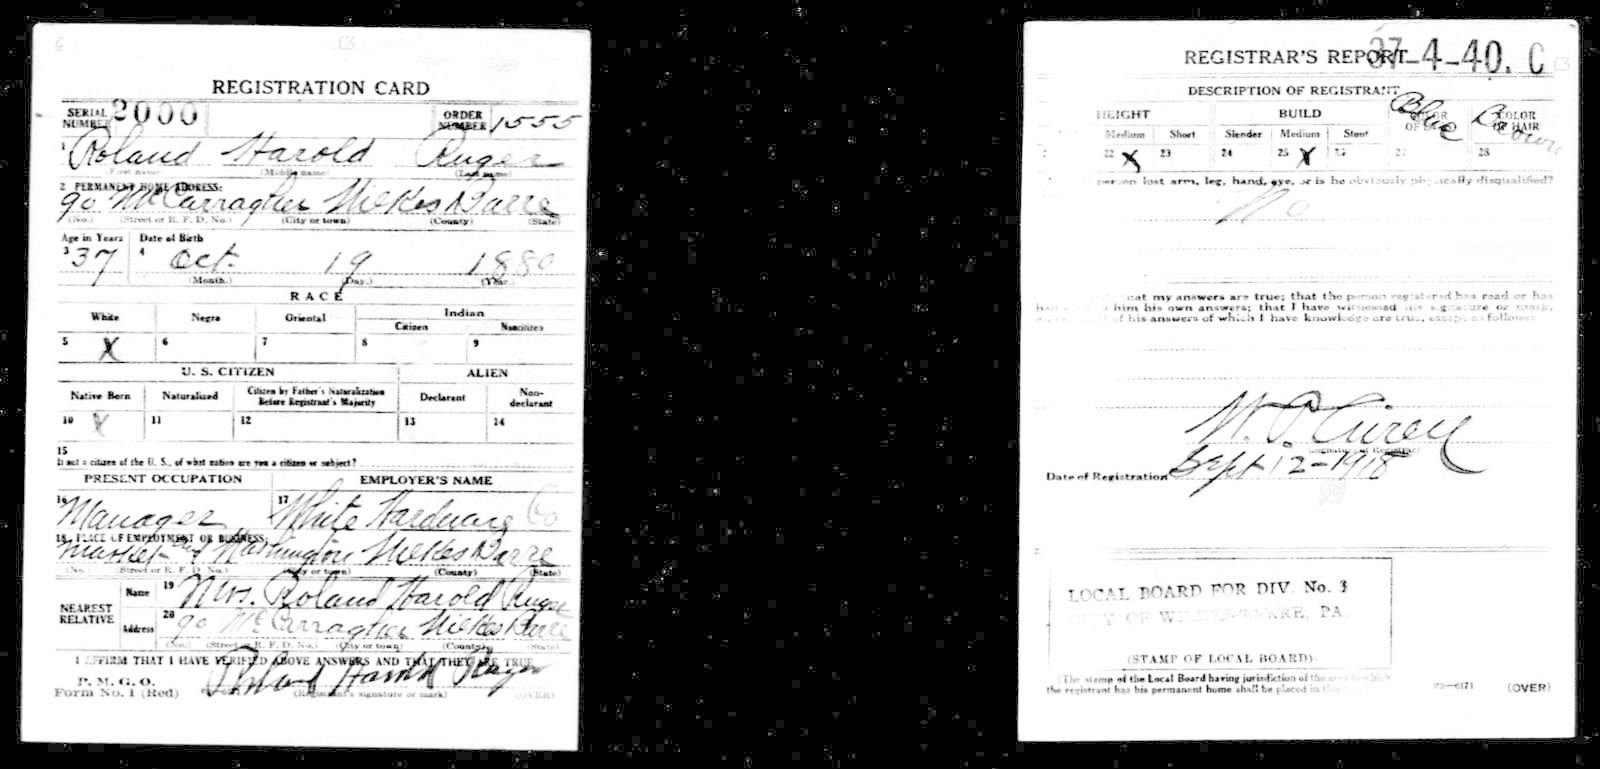 REGISTRATION CARD
SERIAL NUMBER 2000 ORDER NUMBER 1555
1 Roland Harold Ruger
(First name) (Middle name) (Last name)
2 PERMANENT HOME ADDRESS:
90 McCarragher Wilkes Barre
(No.) (Street or R. F. D. No.) (City or town) (County) (State)
Age in Years Date of Birth
3 37 4 Oct. 19 1880
(Month.) (Day.) (Year.)
RACE
White Negro Oriental Indian
Citizen Noncitizen
5 X 6 7 8 9
U. S. CITIZEN ALIEN
Native Born Naturalized Citizen by Father's Naturalization Before Registrant's Majority Declarant Non-declarant
10 X 11 12 13 14
15
If not a citizen of the U. S., of what nation are you a citizen or subject?
PRESENT OCCUPATION EMPLOYER'S NAME
16 Manager 17 White Hardware Co
18 PLACE OF EMPLOYMENT OR BUSINESS:
Market and Washington Wilkes Barre
(No.) (Street or R. F. D. No.) (City or town) (County) (State)
NEAREST RELATIVE Name 19 Mrs. Roland Harold Ruger
Address 20 90 McCarragher Wilkes Barre
(No.) (Street or R. F. D. No.) (City or town) (County) (State)
I AFFIRM THAT I HAVE VERIFIED ABOVE ANSWERS AND THAT THEY ARE TRUE
P. M. G. O.
Form No. 1 (Red) Roland Harold Ruger
(Registrant's signature or mark) (OVER)
REGISTRAR'S REPORT 37-4-40. C
DESCRIPTION OF REGISTRANT
HEIGHT BUILD COLOR OF COLOR OF HAIR
Medium Short Slender Medium Stout Blue Brown
22 X 23 24 25 X 26 27 28
person lost arm, leg, hand, eye, or is he obviously physically disqualified?
No
that my answers are true; that the person registered has read or has
had him his own answers; that I have witnessed his signature or mark,
of his answers of which I have knowledge are true, except as follows:
(Signature of Registrar)
Date of Registration Sept 12-1918
LOCAL BOARD FOR DIV. No. 3
CITY OF WILKES-BARRE, PA.
(STAMP OF LOCAL BOARD)
(The stamp of the Local Board having jurisdiction of the area in which
the registrant has his permanent home shall be placed in this
03-6171 (OVER)